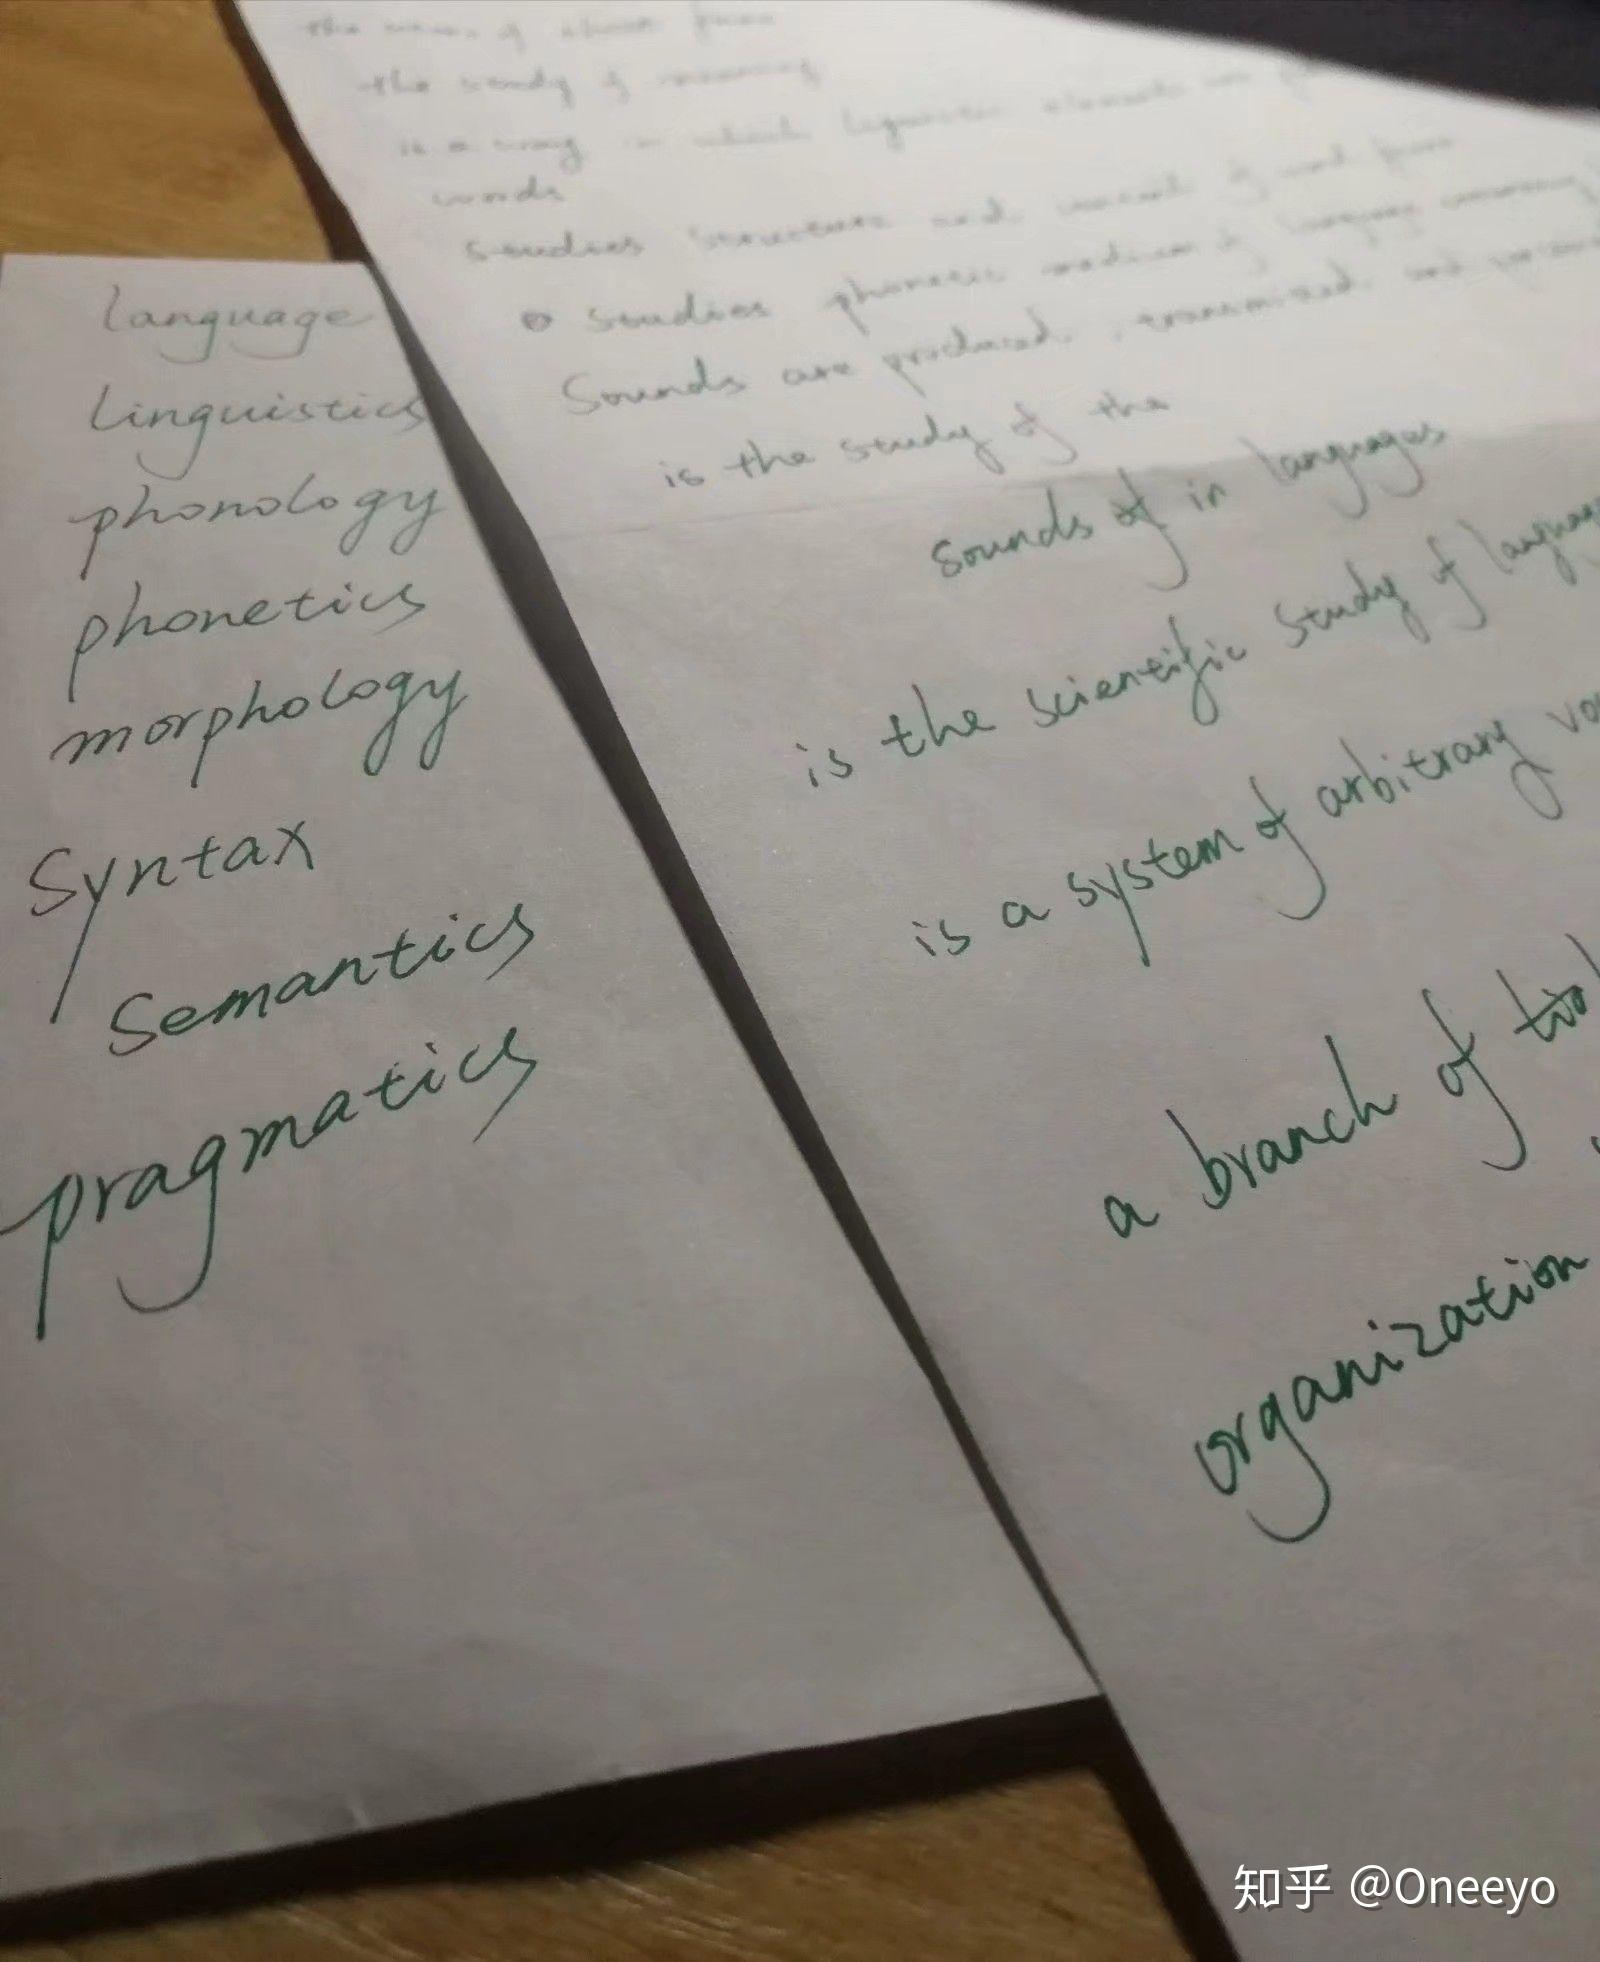 language
Linguistics
phonology
phonetics
morphology
Syntax
Semantics
pragmatics
the of
the study of meaning
is a way in which linguistic elements
words
studies structure and of word
studies phonetic medium of language
Sounds are produced, transmitted and
is the study of the
sounds of in languages
is the scientific study of language
is a system of arbitrary
a branch of
organization
知乎 @Oneeyo